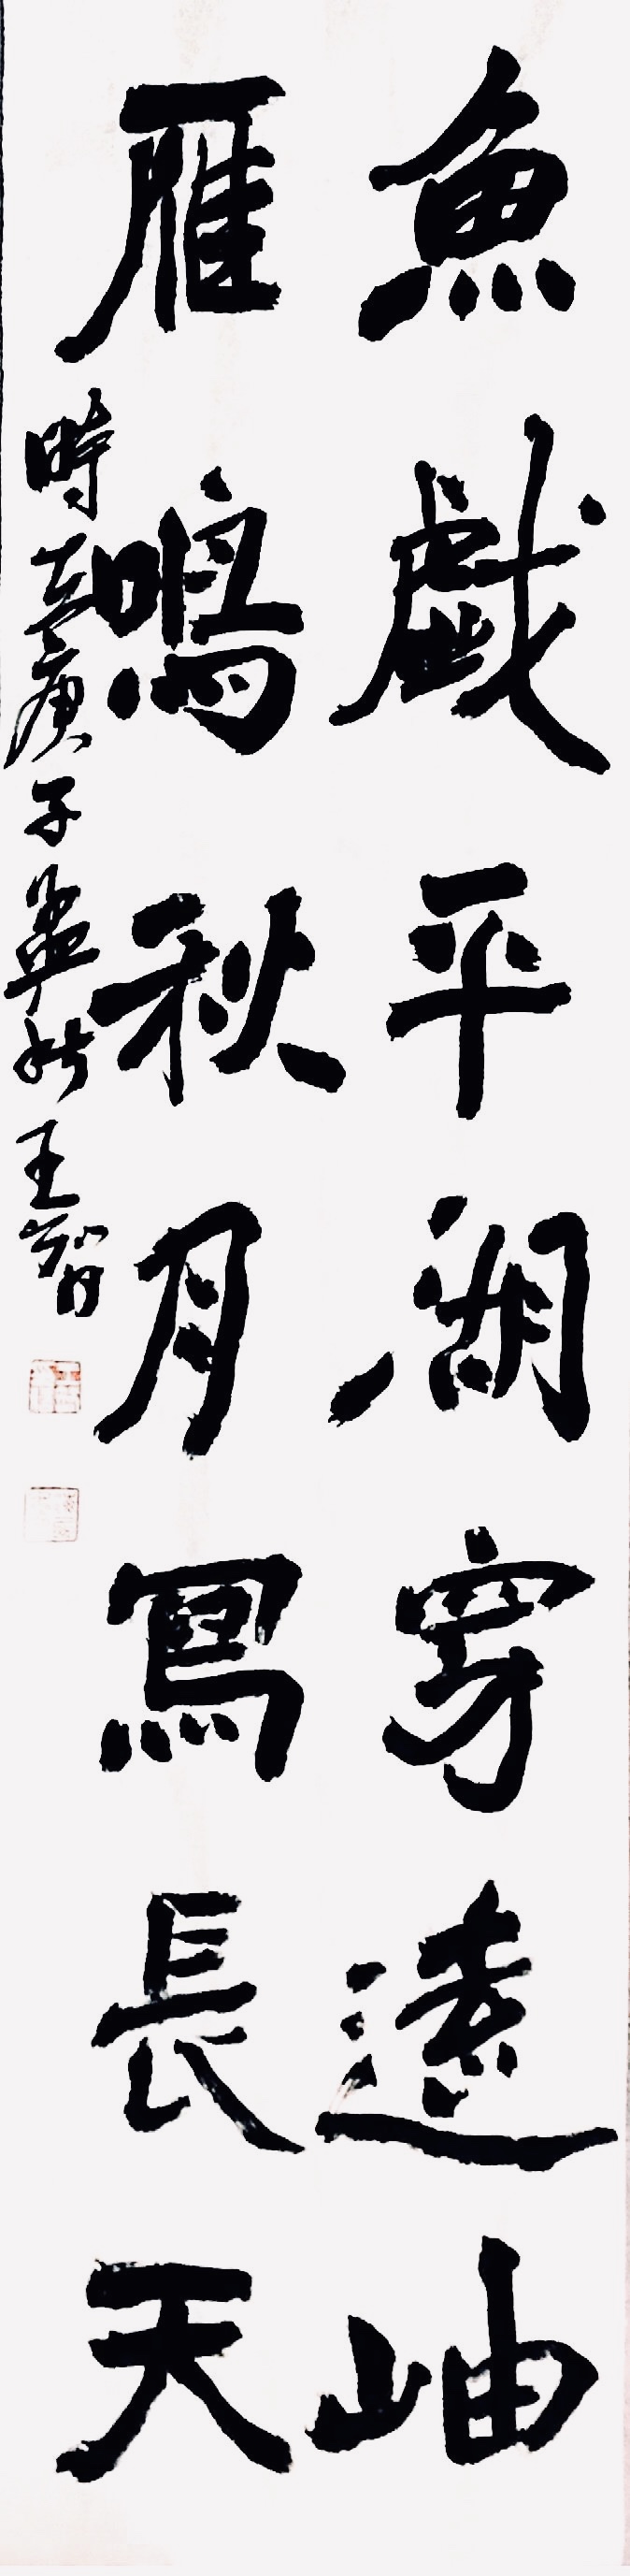 魚戲平湖穿遠岫
雁鳴秋月寫長天
時在庚子孟秋王智